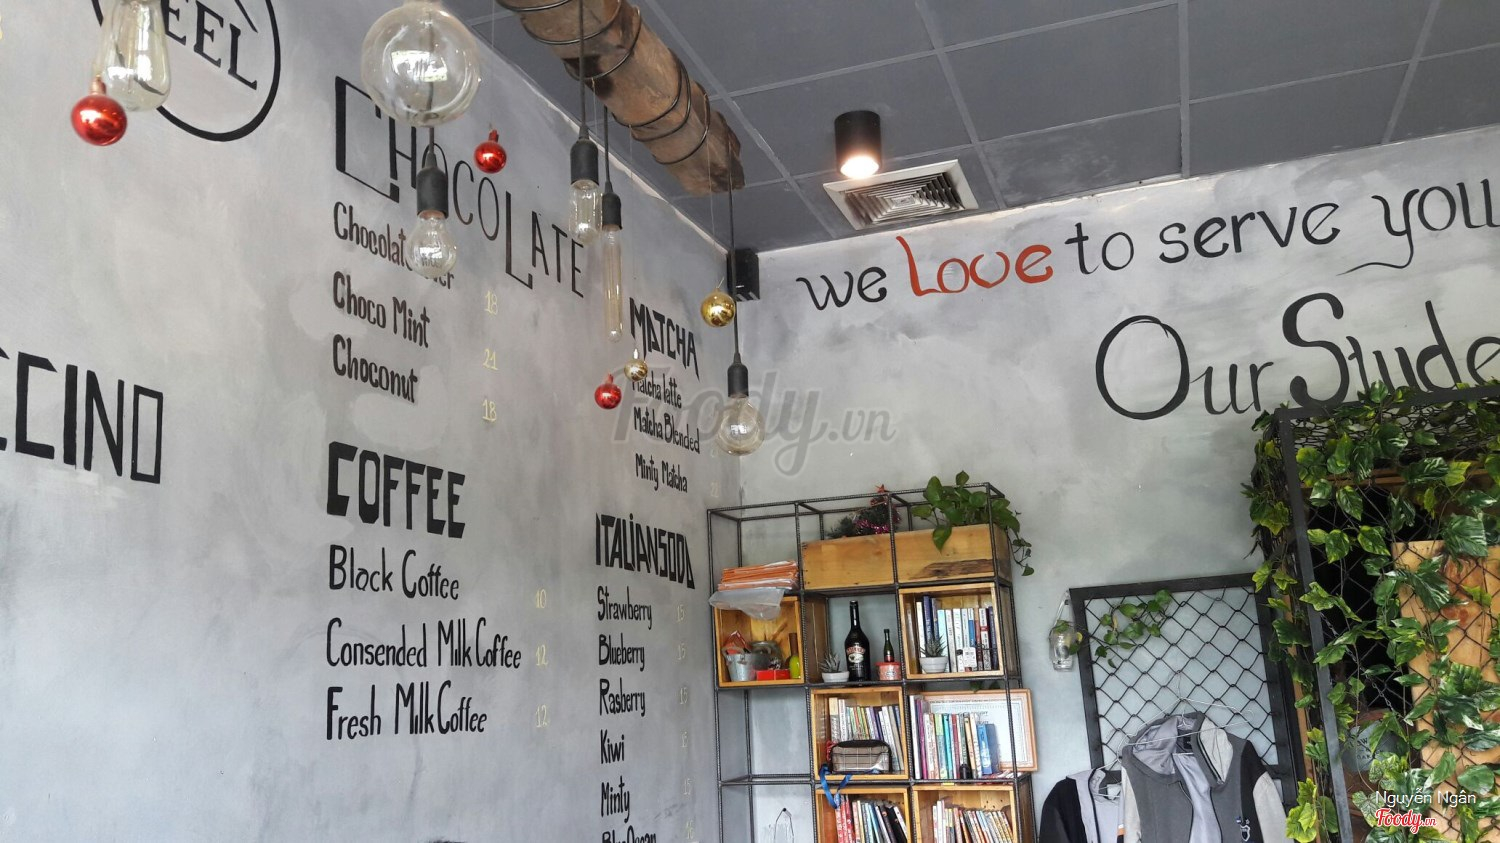 EEL
CCINO
CHOCOLATE
Choco Mint 18
Choconut 21
18
COFFEE
Black Coffee 10
Consended Milk Coffee 12
Fresh Milk Coffee 12
MATCHA
Matcha latte
Matcha Blended
Minty Matcha
ITALIANSODA
Strawberry 15
Blueberry 15
Rasberry 15
Kiwi 15
Minty 15
we Love to serve you
Our Stude
Foody.vn
Nguyễn Ngân
Foody.vn